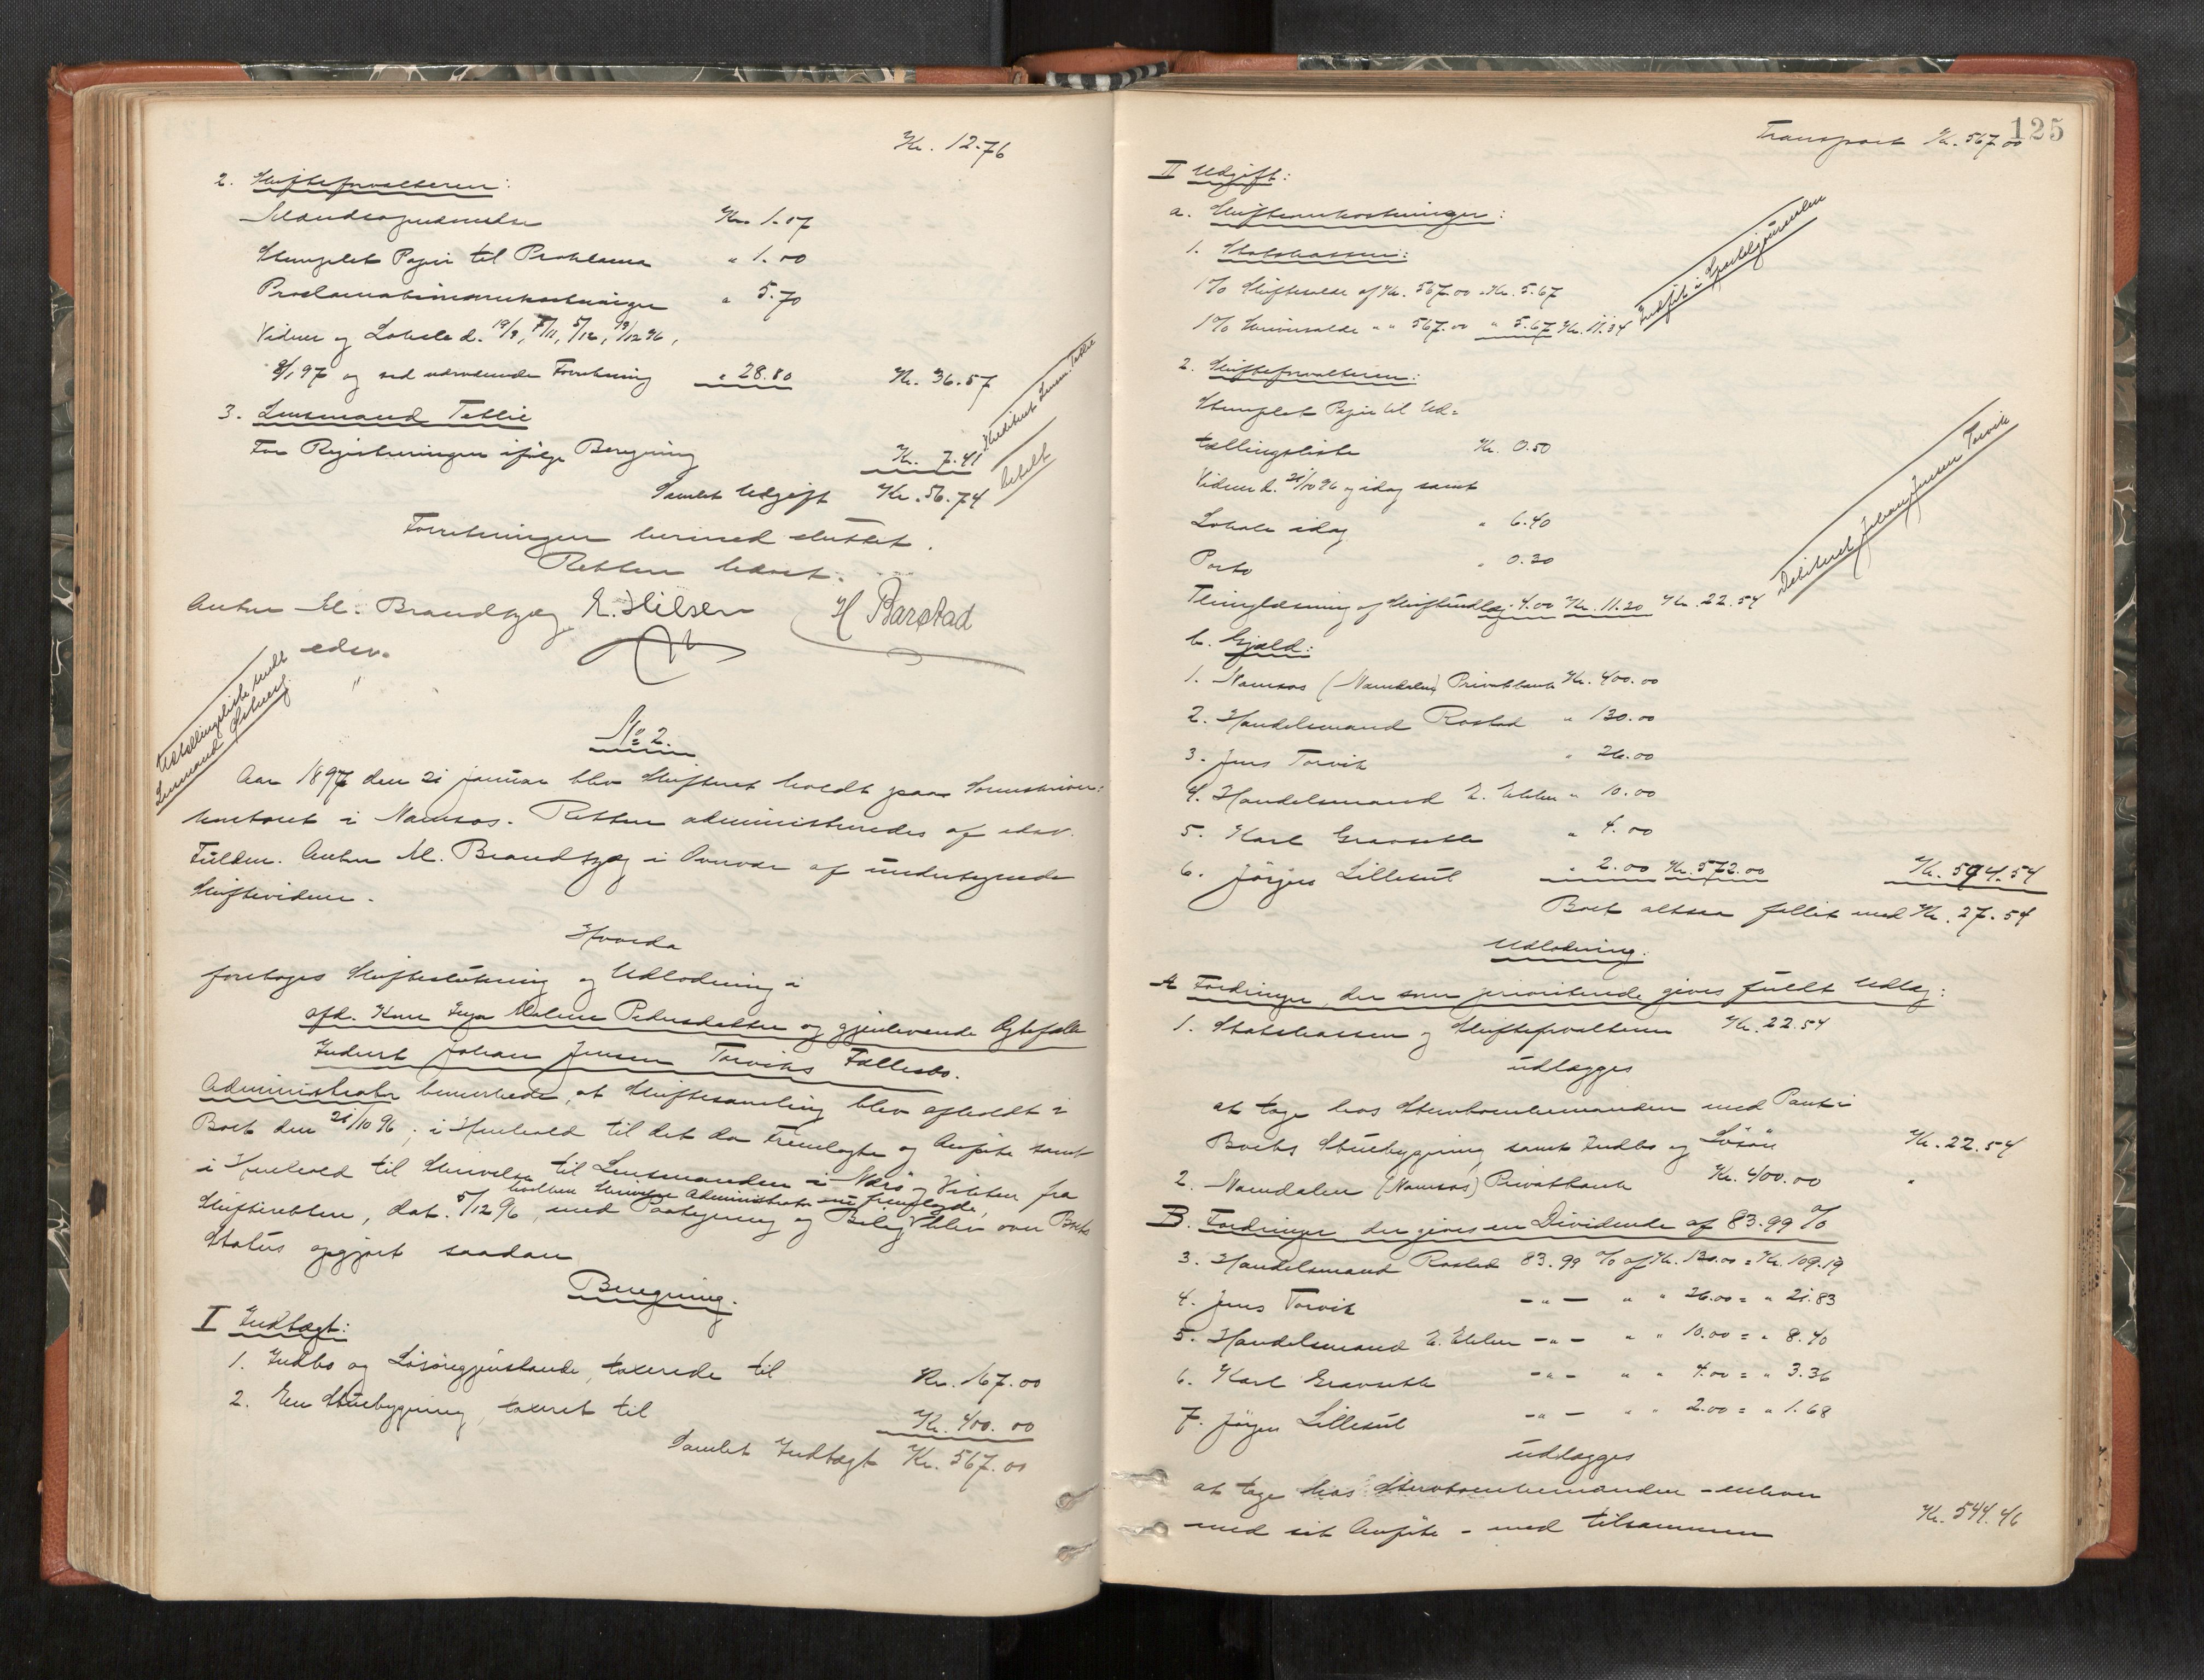 Kr. 12.76
2. Skifteforvalteren:
Stempelet Papir til Proklama " 1.00
Proclamationsomkostninger " 5.70
Vidner og Lokale d. 19/9, 7/11, 5/12, 19/12 96,
8/1 97 og ved nærværende Forretning " 28.80 Kr. 36.57
3. Lensmand Tetlie
For Registreringen ifølge Beregning Kr. 7.41
Krediteret Lensm. Tetlie
betalt
Samlet Udgift Kr. 56.74
Forretningen hermed sluttet.
Retten hævet.
Anton M. Brandtzæg E. Hilsen H Barstad
edsv.
Udtællingsliste sendt
Lensmand
No 2.
Aar 1897 den 21 januar blev Skifteret holdt paa Sorenskriver-
kontoret i Namsos. Retten administreredes af edsv.
Fuldm. Anton M. Brandtzæg i Overvær af undertegnede
Skiftevidner.
Hvorda
foretoges Skifteslutning og Udlodning i
afd. Kone Inga Malene Pedersdatter og gjenlevende Ægtefælle
Inderst Johan Jensen Torviks Fællesbo.
Administrator bemærkede, at Skiftesamling blev afholdt i
Boet den 21/10 96; i Henhold til det da Fremlagte og Anførte samt
i Henhold til Skrivelse til Lensmanden i Nærø og Vikten fra
hvilken Skrivelse Administrator nu fremlagde,
Skifteretten, dat. 5/12 96, med Paategning og Bilag blev over Boets
Status opgjort saadan
Beregning.
I Indtægt:
1. Indbo og Løsøregjenstande, taxerede til Kr. 167.00
2. En Stuebygning, taxeret til Kr. 400.00
Samlet Indtægt Kr. 567.00
125
Transport Kr. 567.00
II Udgift:
a. Skifteomkostninger:
1. Statskassen:
1% Skifteafgift af Kr. 567.00 Kr. 5.67
1% " " 567.00 " 5.67 Kr. 11.34
Indført i Sporteljournalen
2. Skifteforvalteren:
Stemplet Papir til Ud-
tællingsliste Kr. 0.50
Vidner d. 21/10 96 og idag samt
Lokale idag " 6.40
Porto " 0.30
Thinglæsning af Skifteudlæg " 4.00 Kr. 11.20 Kr. 22.54
Debiteret Johan Jensen Torvik
b. Gjæld:
1. Namsos (Namdalens) Privatbank Kr. 400.00
2. Handelsmand Rostad " 130.00
3. Jens Torvik " 26.00
4. Handelsmand E. " 10.00
5. Karl Gravseth " 4.00
6. Jørgen Lillesut " 2.00 Kr. 572.00 Kr. 594.54
Boet altsaa fallit med Kr. 27.54
Udlodning.
A Fordringer, der som prioriterede gives fuldt Udlæg:
1. Statskassen og Skifteforvalteren Kr. 22.54
udlægges
at tage hos Stervboenkemanden med Pant i
Boets Stuebygning samt Indbo og Løsøre Kr. 22.54
2. Namdalen (Namsos) Privatbank Kr. 400.00 "
B. Fordringer, der gives en Dividende af 83.99 %
3. Handelsmand Rostad 83.99 % af Kr. 130.00 = Kr. 109.19
4. Jens Torvik -"- " " 26.00 = " 21.83
5. Handelsmand E. -"- " " 10.00 = " 8.40
6. Karl Gravseth -"- " " 4.00 = " 3.36
7. Jørgen Lillesut -"- " " 2.00 = " 1.68
udlægges
at tage hos Stervboenkemanden - enhver
med sit Anførte - med tilsammen Kr. 544.46